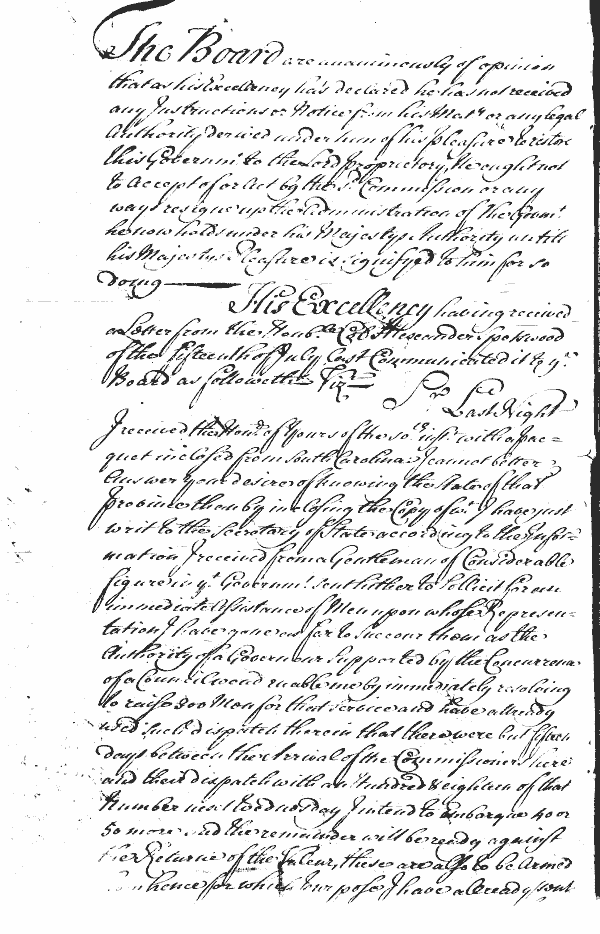 The Board are unanimously of opinion
that as his Excellency has declared he has not received
any Instructions or Notice from his Maty or any legal
Authority derived under him of his pleasure to restore
this Governmt to the Lord Proprietory, He ought not
to Accept of or Act by the sd Commission or any
ways resigne up the Administration of the Govmt
he now holds under his Majestys Authority untill
his Majestys Pleasure is signifyed to him for so
doing
His Excellency having received
a Letter from the Honble Collo Alexander Spotswood
of the fifteenth of July last Communicated it to ye
Board as followeth Vizt
Sr Last Night
I received the Honr of Yours of the 10th inst. with a pac=
quet inclosed from South Carolina I cannot better
Answer your desire of knowing the State of that
Province than by inclosing the Copy of wt I have just
writ to the Secretary of State according to the Infor=
mation I received from a Gentleman of Considerable
figure in yt Governmt sent hither to sollicit for an
immediate Assistance of Men upon whose Represen=
tation I have gone so far to succour them as the
Authority of a Governour Supported by the Concurrence
of a Council could enable me by immediately resolving
to raise 300 Men for that service and have already
used such dispatch therein that there were but fifteen
days between the Arrival of the Commissioner here
and their dispatch with an Hundred & eighteen of that
Number next Wednesday I intend to Embarque 40 or
50 more and the remainder will be ready against
the Returne of the these are also to be Armed
hence for which Purpose I have already sent